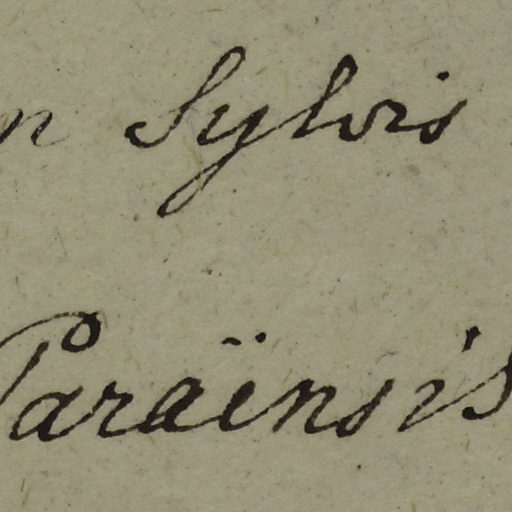 n Sylvis
Paraënsis